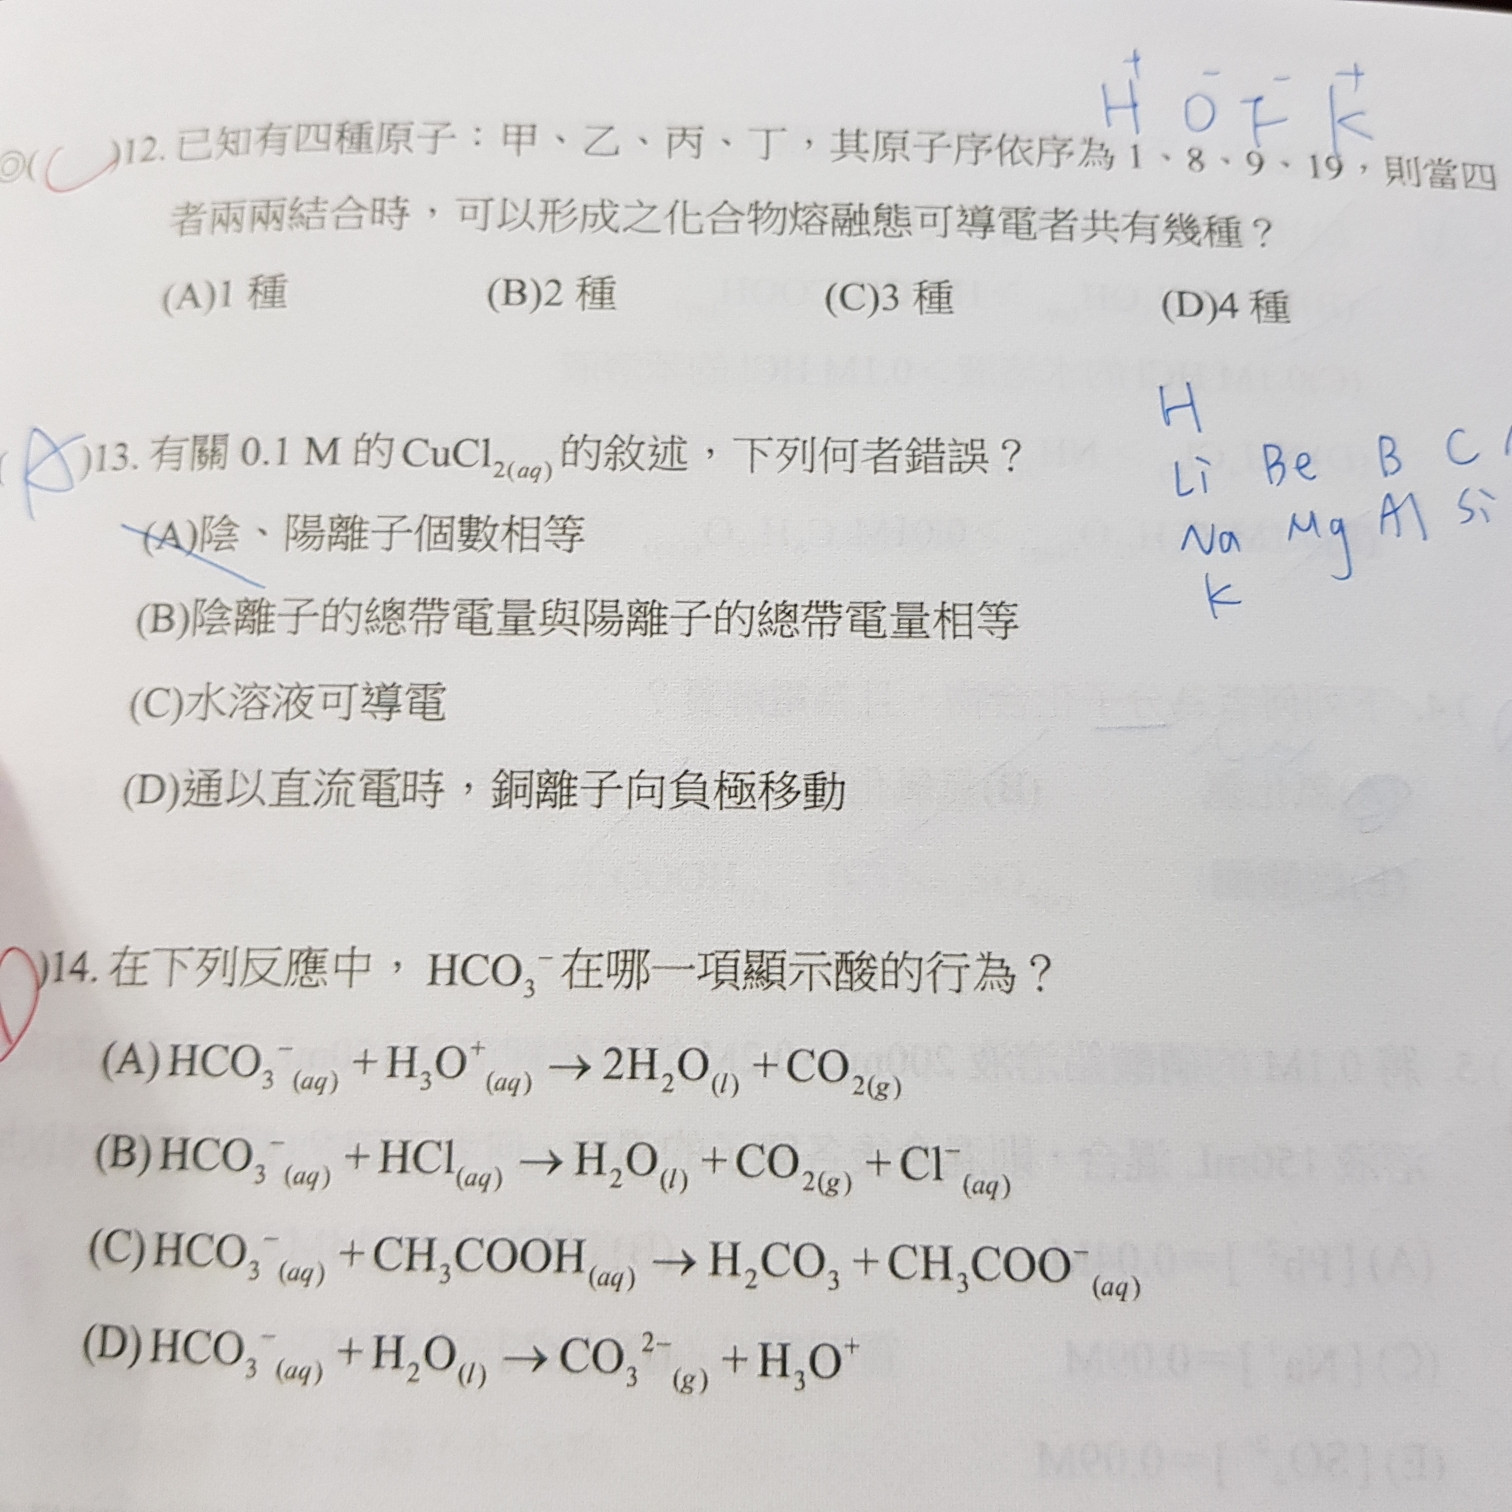 H⁺ O⁻ F⁻ K⁺
◎( C )12. 已知有四種原子：甲、乙、丙、丁，其原子序依序為 1、8、9、19，則當四
者兩兩結合時，可以形成之化合物熔融態可導電者共有幾種？
(A)1 種 (B)2 種 (C)3 種 (D)4 種
( A )13. 有關 0.1 M 的 CuCl₂₍aq₎ 的敘述，下列何者錯誤？
(A)陰、陽離子個數相等
(B)陰離子的總帶電量與陽離子的總帶電量相等
(C)水溶液可導電
(D)通以直流電時，銅離子向負極移動
H
Li Be B C
Na Mg Al Si
K
)14. 在下列反應中，HCO₃⁻ 在哪一項顯示酸的行為？
(A) HCO₃⁻(aq) + H₃O⁺(aq) → 2H₂O(l) + CO₂(g)
(B) HCO₃⁻(aq) + HCl(aq) → H₂O(l) + CO₂(g) + Cl⁻(aq)
(C) HCO₃⁻(aq) + CH₃COOH(aq) → H₂CO₃ + CH₃COO⁻(aq)
(D) HCO₃⁻(aq) + H₂O(l) → CO₃²⁻(g) + H₃O⁺